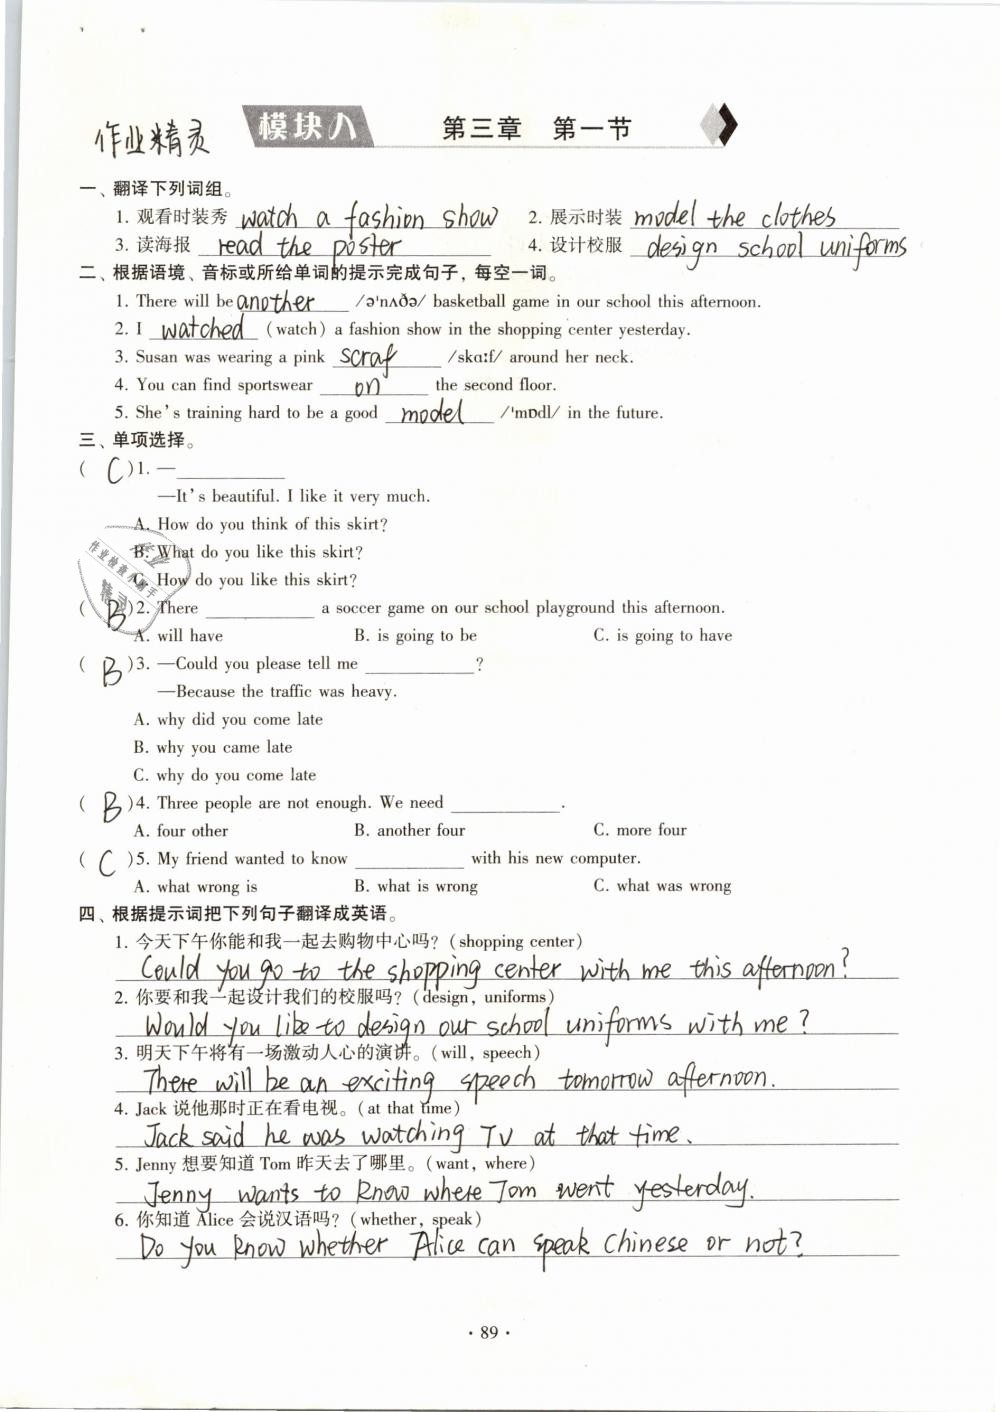 作业精灵
模块八 第三章 第一节
一、翻译下列词组。
1. 观看时装秀 watch a fashion show 2. 展示时装 model the clothes
3. 读海报 read the poster 4. 设计校服 design school uniforms
二、根据语境、音标或所给单词的提示完成句子，每空一词。
1. There will be another /ə'nʌðə/ basketball game in our school this afternoon.
2. I watched (watch) a fashion show in the shopping center yesterday.
3. Susan was wearing a pink scraf /skɑːf/ around her neck.
4. You can find sportswear on the second floor.
5. She's training hard to be a good model /'mɒdl/ in the future.
三、单项选择。
( C )1. —__________
—It's beautiful. I like it very much.
A. How do you think of this skirt?
B. What do you like this skirt?
C. How do you like this skirt?
( B )2. There __________ a soccer game on our school playground this afternoon.
A. will have B. is going to be C. is going to have
( B )3. —Could you please tell me __________?
—Because the traffic was heavy.
A. why did you come late
B. why you came late
C. why do you come late
( B )4. Three people are not enough. We need __________.
A. four other B. another four C. more four
( C )5. My friend wanted to know __________ with his new computer.
A. what wrong is B. what is wrong C. what was wrong
四、根据提示词把下列句子翻译成英语。
1. 今天下午你能和我一起去购物中心吗？(shopping center)
Could you go to the shopping center with me this afternoon?
2. 你要和我一起设计我们的校服吗？(design, uniforms)
Would you like to design our school uniforms with me?
3. 明天下午将有一场激动人心的演讲。(will, speech)
There will be an exciting speech tomorrow afternoon.
4. Jack 说他那时正在看电视。(at that time)
Jack said he was watching TV at that time.
5. Jenny 想要知道 Tom 昨天去了哪里。(want, where)
Jenny wants to know where Tom went yesterday.
6. 你知道 Alice 会说汉语吗？(whether, speak)
Do you know whether Alice can speak Chinese or not?
· 89 ·